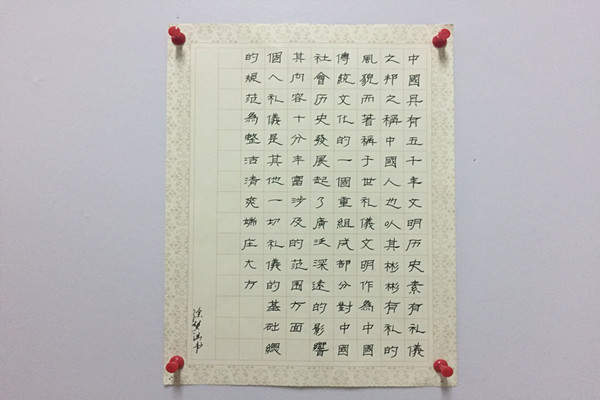 中國具有五千年文明历史素有礼儀
之邦之稱中國人也以其彬彬有礼的
風貌而著稱于世礼儀文明作為中國
傳統文化的一個重組成部分對中國
社會历史發展起了廣泛深遠的影響
其内容十分丰富涉及的范围方面
個人礼儀是其他一切礼儀的基础總
的規范為整洁清爽端庄大方